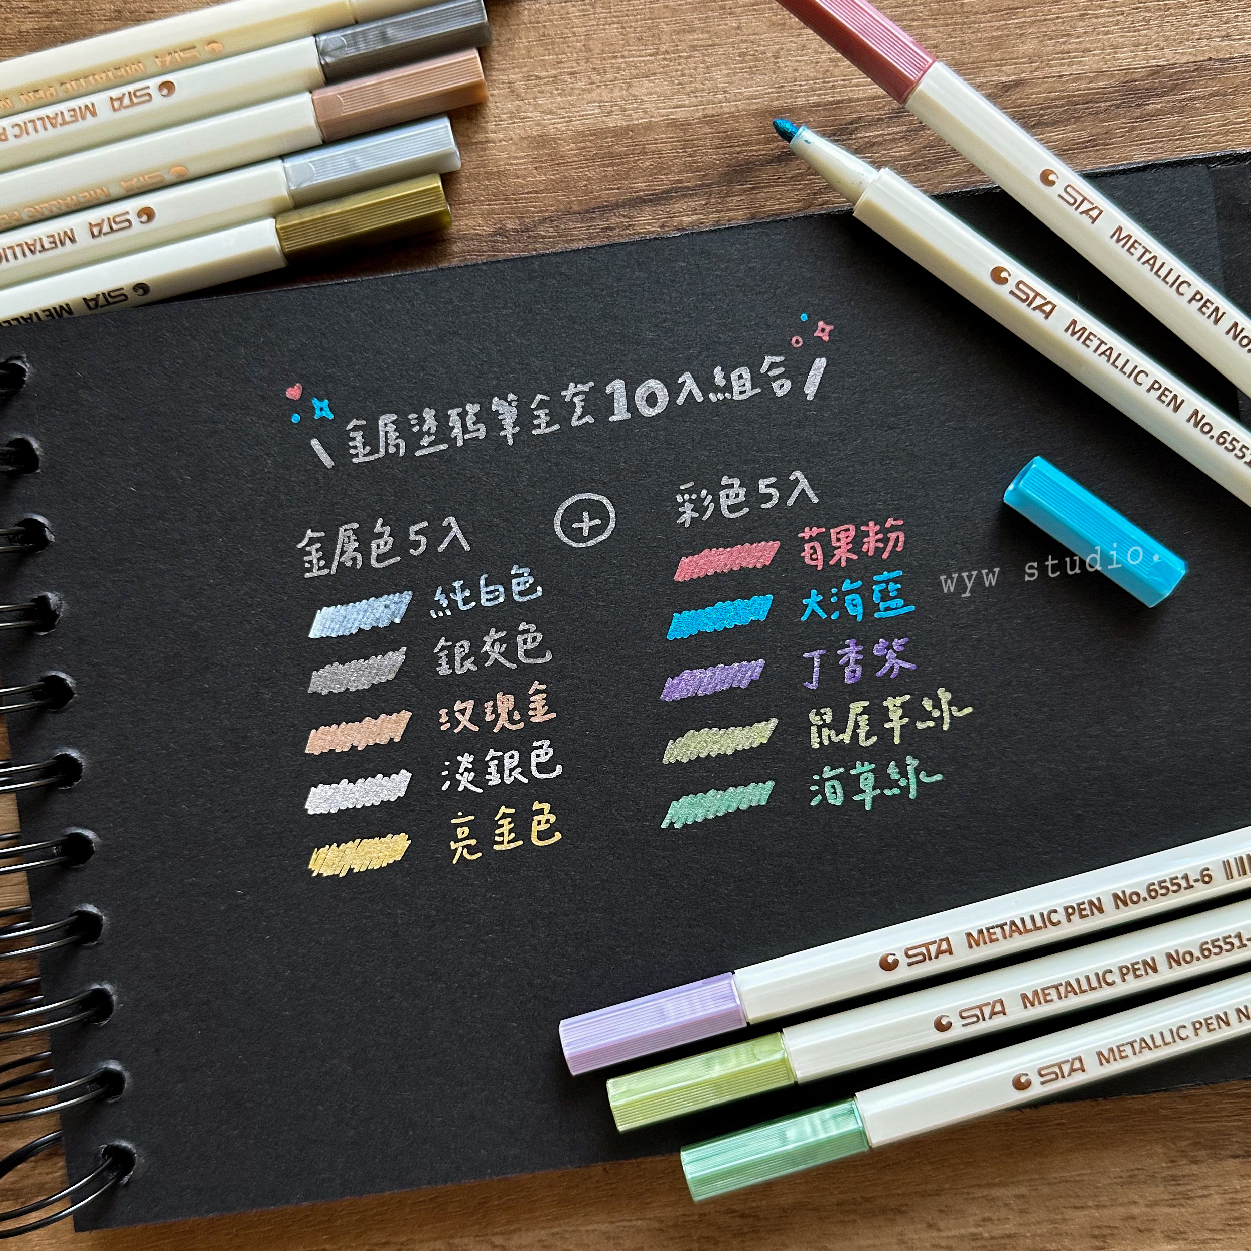 STA METALLIC PEN
STA METALLIC P
STA METALLIC PE
STA METALLIC
STA METALLIC
STA METALLIC PEN No.
STA METALLIC PEN No.6551
\金屬塗鴉筆全套10入組合/
金屬色5入
+
彩色5入
純白色
銀灰色
玫瑰金
淡銀色
亮金色
莓果粉
大海藍
丁香紫
鼠尾草綠
海草綠
wyw studio.
STA METALLIC PEN No.6551-6
STA METALLIC PEN No.6551-
STA METALLIC PEN N